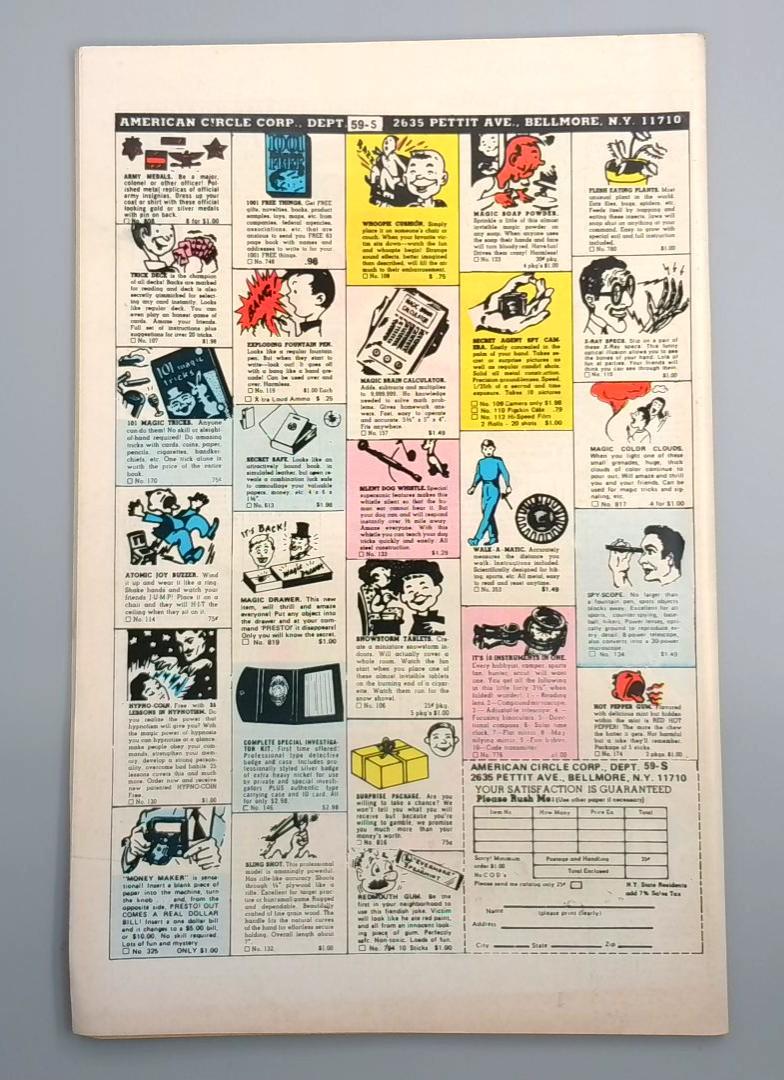 AMERICAN CIRCLE CORP., DEPT. 59-S 2635 PETTIT AVE., BELLMORE, N.Y. 11710
ARMY MEDALS. Be a major,
colonel or other officer! Pol-
ished metal replicas of official
army insignias. Dress up your
coat or shirt with these official
looking gold or silver medals
with pin on back.
No. 808 8 for $1.00
TRICK DECK is the champion
of all decks! Backs are marked
for reading and deck is also
secretly gimmicked for select-
ing any card instantly. Looks
like regular deck. You can
even play an honest game of
cards. Amaze your friends.
Full set of instructions plus
suggestions for over 20 tricks.
No. 107 $1.98
101 magic
tricks
101 MAGIC TRICKS. Anyone
can do them! No skill or sleight-
of-hand required! Do amazing
tricks with cards, coins, paper,
pencils, cigarettes, handker-
chiefs, etc. One trick alone is
worth the price of the entire
book.
No. 170 75¢
ATOMIC JOY BUZZER. Wind
it up and wear it like a ring.
Shake hands and watch your
friends J-U-M-P! Place it on a
chair and they will H-I-T the
ceiling when they sit on it.
No. 114 75¢
HYPNO-COIN. Free with 25
LESSONS IN HYPNOTISM. Do
you realize the power that
hypnotism will give you? With
the magic power of hypnosis
you can hypnotize at a glance,
make people obey your com-
mands, strengthen your mem-
ory, develop a strong person-
ality, overcome bad habits. 25
lessons covers this and much
more. Order now and receive
new patented HYPNO-COIN
Free.
No. 130 $1.00
"MONEY MAKER" is sensa-
tional! Insert a blank piece of
paper into the machine, turn
the knob and, from the
opposite side, PRESTO! OUT
COMES A REAL DOLLAR
BILL! Insert a one dollar bill
and it changes to a $5.00 bill,
or $10.00. No skill required.
Lots of fun and mystery
No 325 ONLY $1.00
1001
1001 FREE THINGS. Get FREE
gifts, novelties, books, product
samples, toys, maps, etc. from
companies, federal agencies,
associations, etc. that are
anxious to send you FREE 63
page book with names and
addresses to write to for your
1001 FREE things.
No. 748 .98
BANG!
EXPLODING FOUNTAIN PEN.
Looks like a regular fountain
pen. But when they start to
write—look out! It goes off
with a bang like a hand gre-
nade! Can be used over and
over. Harmless.
No. 119 $1.00 Each
X tra Loud Ammo $ .25
SECRET SAFE. Looks like an
attractively bound book in
simulated leather, but open re-
veals a combination lock safe
to camouflage your valuable
papers, money, etc.
No. 613 $1.98
IT'S BACK!
Magic Drawer
MAGIC DRAWER. This new
item, will thrill and amaze
everyone! Put any object into
the drawer and at your com-
mand "PRESTO" it disappears!
Only you will know the secret.
No. 819 $1.00
COMPLETE SPECIAL INVESTIGA-
TOR KIT. First time offered!
Professional type detective
badge and case. Includes pro-
fessionally styled silver badge
of extra heavy nickel for use
by private and special investi-
gators PLUS authentic type
carrying case and ID card. All
for only $2.98.
No. 146 $2.98
SLING SHOT. This professional
model is amazingly powerful.
Has rifle-like accuracy. Shoots
through ¼" plywood like a
rifle. Excellent for target prac-
tice or hunt small game. Rugged
and dependable. Beautifully
crafted of fine grain wood. The
handle fits the natural curves
of the hand for effortless secure
holding. Overall length about
7".
No. 132 $1.00
WHOOPIE CUSHION. Simply
place it on someone's chair or
couch. When your favorite vic-
tim sits down—watch the fun
and whoopie begin! Strange
sound effects, better imagined
than described, will fill the air
much to their embarrassment.
No. 108 $ .75
MAGIC BRAIN
CALCULATOR
MAGIC BRAIN CALCULATOR.
Adds, subtracts and multiplies
to 9,999,999. No knowledge
needed to solve math prob-
lems. Gives homework ans-
wers. Fast, easy to operate
and accurate. 5½" x 3" x 4".
Fits anywhere.
No. 157 $1.49
SILENT DOG WHISTLE. Special
supersonic features makes this
whistle silent so that the hu-
man ear cannot hear it. But
your dog can and will respond
instantly over ½ mile away.
Amaze everyone. With this
whistle you can teach your dog
tricks quickly and easily. All
steel construction.
No. 133 $1.25
SNOWSTORM TABLETS. Cre-
ate a miniature snowstorm in-
doors. Will actually cover a
whole room. Watch the fun
start when you place one of
these almost invisible tablets
on the burning end of a cigar-
ette. Watch them run for the
snow shovel.
No. 106 25¢ pkg.
5 pkg's $1.00
SURPRISE PACKAGE. Are you
willing to take a chance? We
won't tell you what you will
receive but because you're
willing to gamble, we promise
you much more than your
money's worth.
No. 816 75¢
REDMOUTH GUM. Be the
first in your neighborhood to
use this fiendish joke. Victim
will look like he ate red paint,
and all from an innocent look-
ing piece of gum. Perfectly
safe. Non-toxic. Loads of fun.
No. 764 10 Sticks $1.00
MAGIC SOAP POWDER.
Sprinkle a little of this almost
invisible magic powder on
any soap. When anyone uses
the soap their hands and face
will turn bloody red. Have fun!
Drives them crazy! Harmless!
No. 123 30¢ pkg.
4 pkg's $1.00
SECRET AGENT SPY CAM-
ERA. Easily concealed in the
palm of your hand. Takes se-
cret or surprise pictures as
well as regular candid shots.
Solid all metal construction.
Precision ground lenses. Speed,
1/25th of a second and time
exposure. Takes 10 pictures
No. 109 Camera only $1.98
No. 110 Pigskin Case .79
No. 112 Hi-Speed Film
2 Rolls - 20 shots $1.00
WALK-A-MATIC. Accurately
measures the distance you
walk. Instructions included.
Scientifically designed for hik-
ing, sports, etc. All metal, easy
to read and reset anytime.
No. 353 $1.49
IT'S 10 INSTRUMENTS IN ONE.
Every hobbyist, camper, sports
fan, hunter, scout will want
one. You get all the following
in this little forty 3½", when
folded! wonder! 1. - Reading
lens. 2 - Compound microscope.
3 - Adjustable telescope. 4 -
Focusing binoculars. 5 - Direc-
tional compass. 6 - Solar time
clock. 7 - Flat mirror. 8 - Mag-
nifying mirror. 9 -
10 - Code transmitter.
No. 776 $1.00
FLESH EATING PLANTS. Most
unusual plant in the world.
Eats flies, bugs, spiders, etc.
Feeds itself by trapping and
eating these insects. Jaws will
snap shut on anything at your
command. Easy to grow with
special soil and full instruction
included.
No. 780 $1.00
X-RAY SPECS. Slip on a pair of
these X-Ray specs. This funny
optical illusion allows you to see
the bones of your hand. Lots of
fun at parties. Your friends will
think you can see through them.
No. 115 $1.00
MAGIC COLOR CLOUDS.
When you light one of these
small grenades, huge, thick
clouds of color continue to
pour out. Will amaze and thrill
you and your friends. Can be
used for magic tricks and sig-
naling, etc.
No. 817 4 for $1.00
SPY-SCOPE. No larger than
a fountain pen, spots objects
blocks away. Excellent for all
sports, counter-spying, base-
ball, hikers. Power lenses, opti-
cally ground to reproduce ev-
ery detail. 8-power telescope,
also converts into a 30-power
microscope.
No. 134 $1.49
HOT PEPPER GUM. Flavored
with delicious mint but hidden
within the mint is RED HOT
PEPPER! The more the chew
the hotter it gets. Not harmful
but a joke they'll remember.
Package of 5 sticks.
No. 174 2 packs $1.00
AMERICAN CIRCLE CORP. DEPT. 59-S
2635 PETTIT AVE., BELLMORE, N.Y. 11710
YOUR SATISFACTION IS GUARANTEED
Please Rush Me: (Use other paper if necessary)
Item No. How Many Price Ea. Total
Sorry! Minimum
order $1.00
No C O D's
Postage and Handling 35¢
Total Enclosed
Please send me catalog only 25¢
N.Y. State Residents
add 7% Sales Tax
Name
(please print clearly)
Address
City State Zip